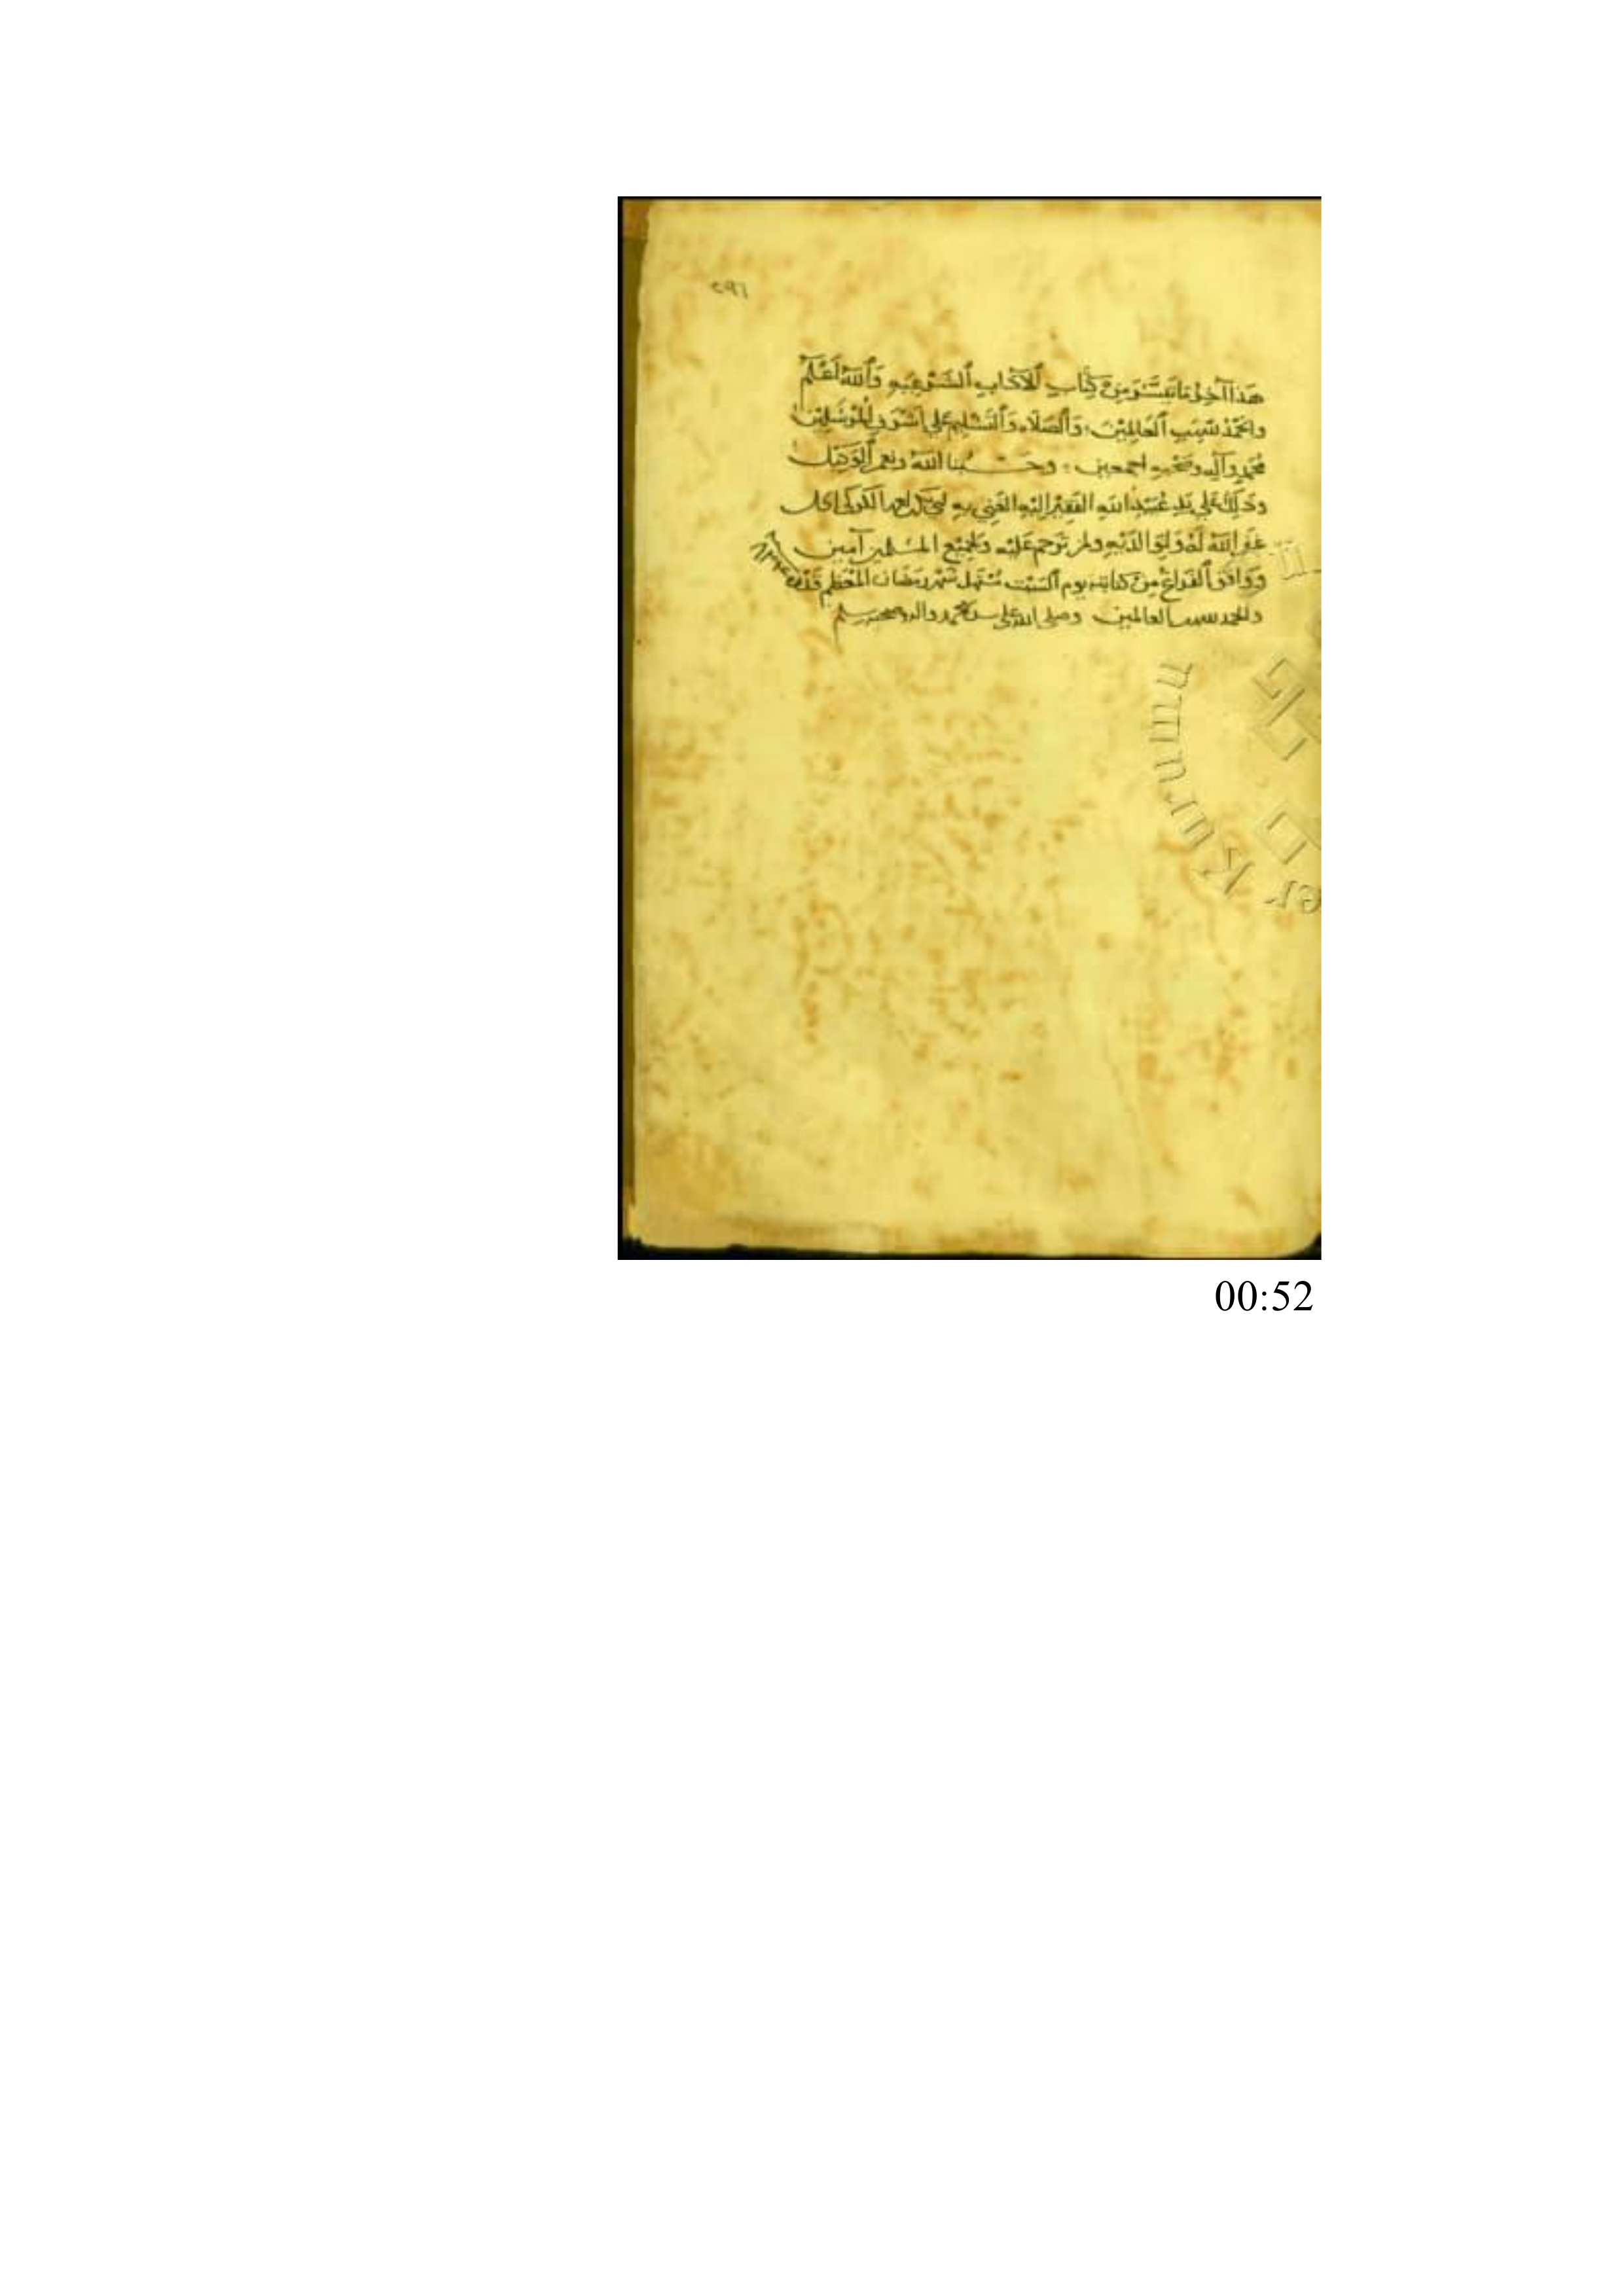 ٢٩٦
هَذا آخِرُ مَا تَيَسَّرَ مِنْ كِتَابِ الآدَابِ الشَّرْعِيهِ وَاللهُ أَعْلَمُ
والحَمْدُ للهِ رَبِ العَالمِيْنَ وَالصَّلَاه وَالتَسْلِيم عَلي أشْرَفِ المُرْسَلِيْن
مُحَمدٍ وَآلِهِ وصَحْبِهِ اجمعين وحَسْبُنا اللهُ ونعم الوَكيْل
وذَلِكَ عَلي يَدِ عُبَيْدِ اللهِ الفَقِيْرِ إليْهِ الغَنِي بِهِ
غَفَرَ اللهُ لَهُ وَلِوَالدَيْهِ ولمن تَرَحم عَلَيْه وَلِجَمِيْعِ المسْلمين آمِين
وَوَافَقَ الفَرَاغُ مِنْ كتابته يوم السَبْت مُسْتَهل شَهْر رَمَضَان المُعَظم
والحمد لله رب العالمين وصلى الله على سيدنا محمد واله وصحبه وسلم
n
er Kurumu
00:52